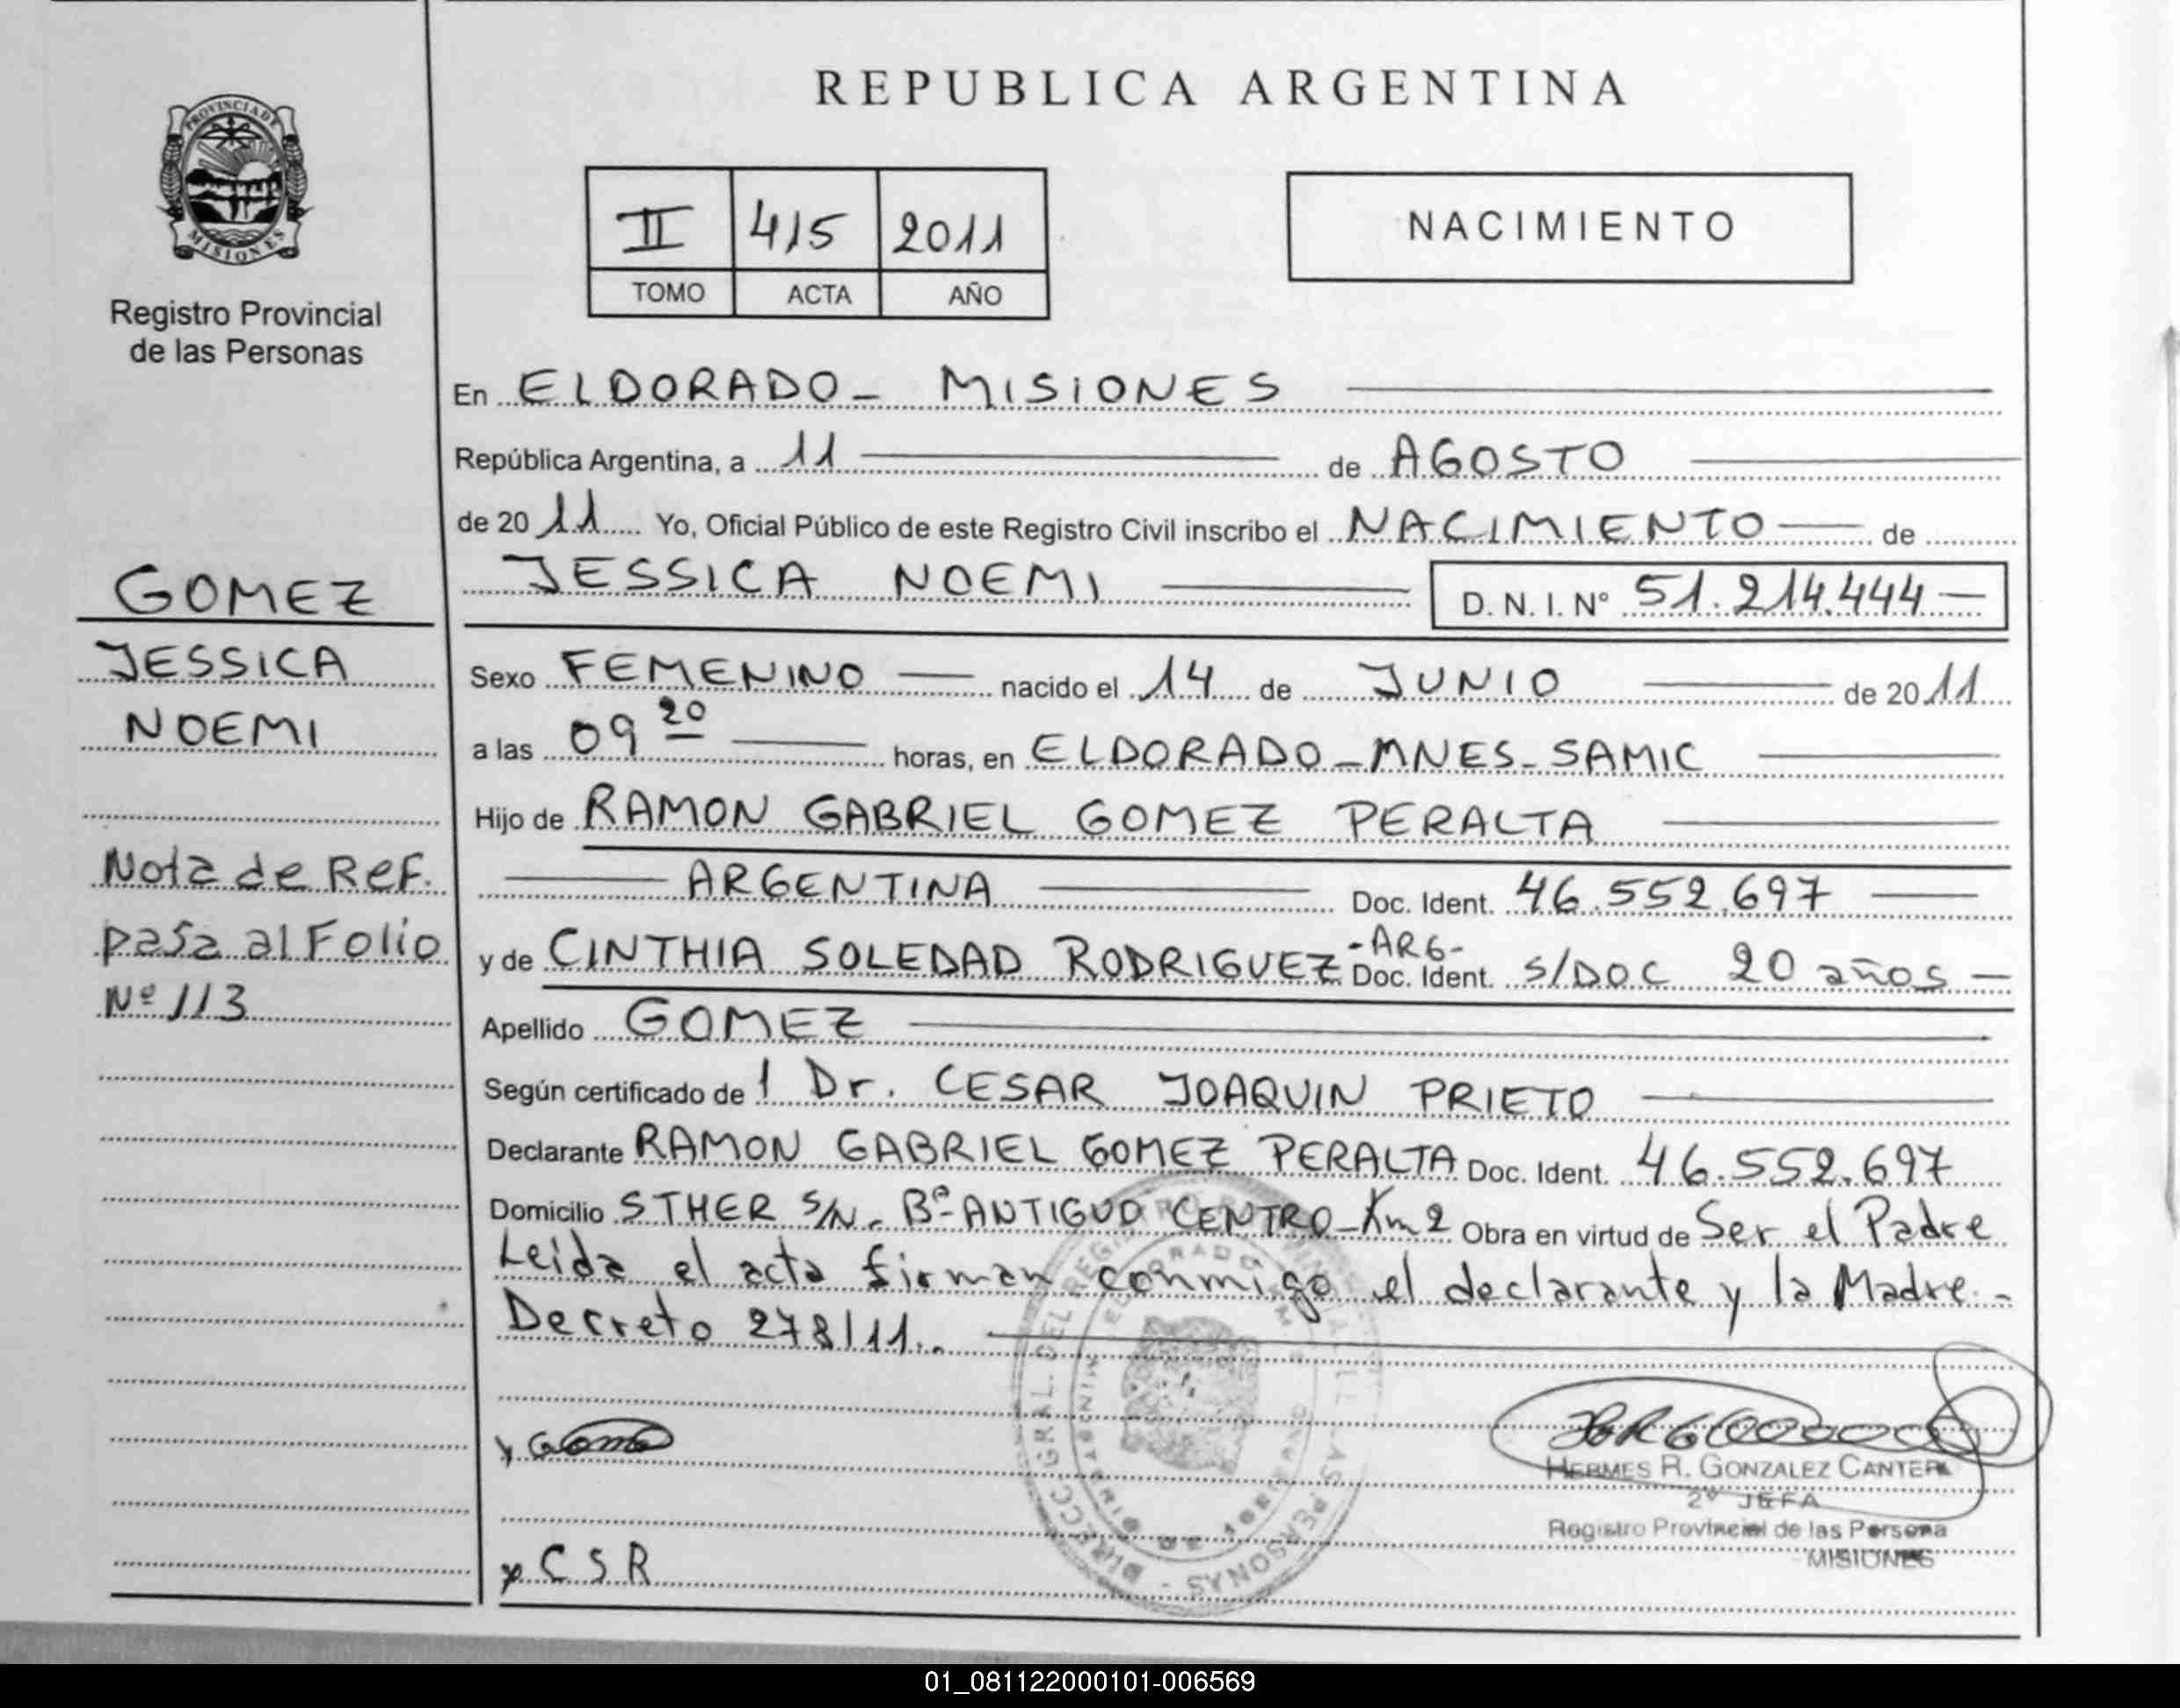 REPUBLICA ARGENTINA
PROVINCIA DE
MISIONES
Registro Provincial
de las Personas
II 415 2011
TOMO ACTA AÑO
NACIMIENTO
En ELDORADO - MISIONES
República Argentina, a 11 de AGOSTO
de 2011 Yo, Oficial Público de este Registro Civil inscribo el NACIMIENTO de
JESSICA NOEMI D. N. I. N° 51.214.444
GOMEZ
JESSICA
NOEMI
Nota de Ref.
pasa al Folio
Nº 113
Sexo FEMENINO nacido el 14 de JUNIO de 2011
a las 09 20 horas, en ELDORADO - MNES - SAMIC
Hijo de RAMON GABRIEL GOMEZ PERALTA
ARGENTINA Doc. Ident. 46.552.697
y de CINTHIA SOLEDAD RODRIGUEZ -ARG- Doc. Ident. S/DOC 20 años
Apellido GOMEZ
Según certificado de 1 Dr. CESAR JOAQUIN PRIETO
Declarante RAMON GABRIEL GOMEZ PERALTA Doc. Ident. 46.552.697
Domicilio STHER S/N. Bº ANTIGUO CENTRO - Km 2 Obra en virtud de Ser el Padre
Leida el acta firman conmigo el declarante y la Madre. -
Decreto 278/11..
x C S R
HERMES R. GONZALEZ CANTER
2º JEFA
Registro Provincial de las Persona
MISIONES
01_081122000101-006569